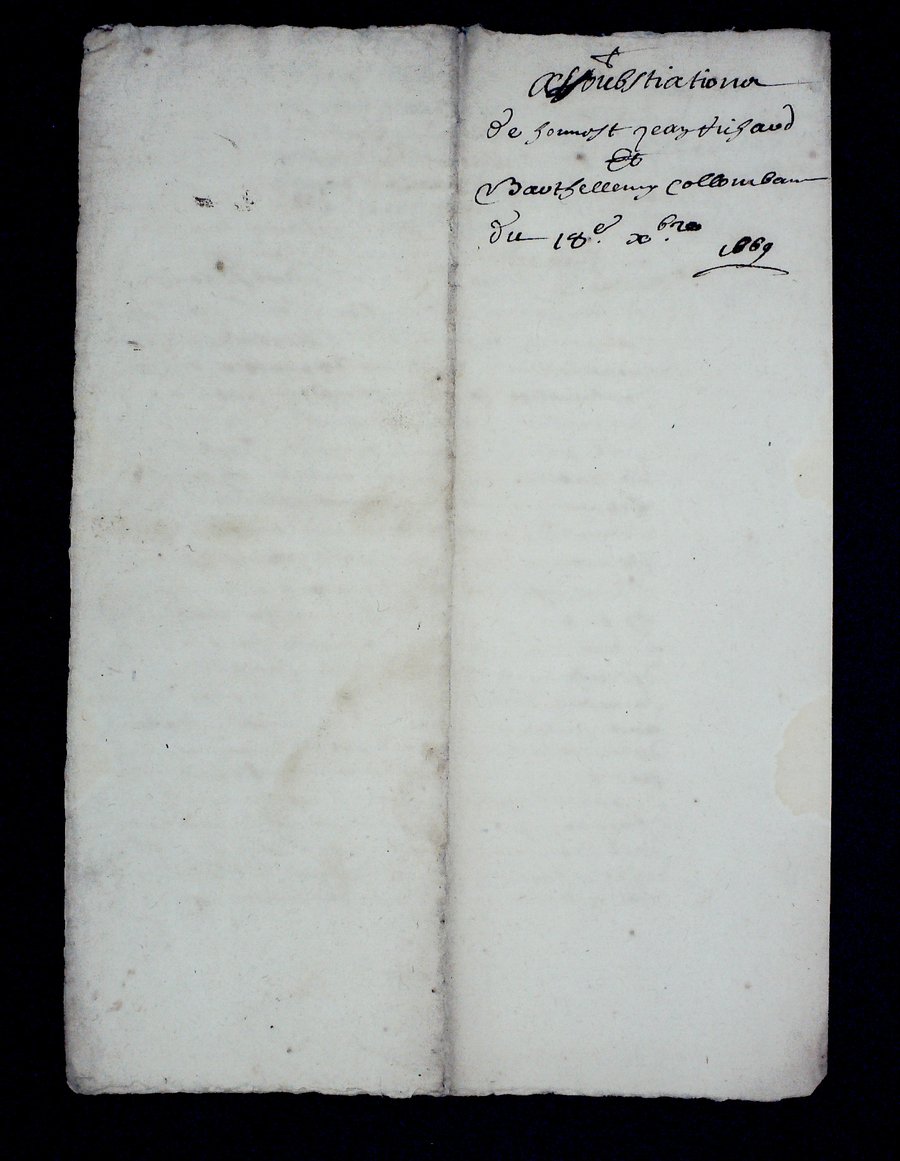 Assoubstiationa
de honnost jean Richard
Et
Barthellemy Collomban
du 18e. xbre
1669